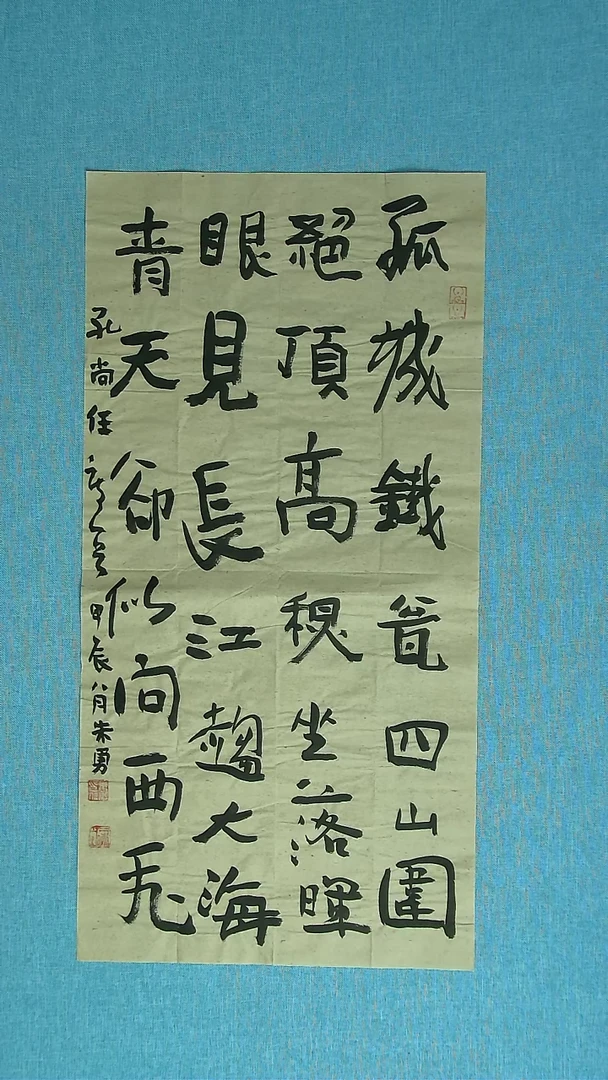 孤城鐵瓮四山圍
絕頂高秋坐落暉
眼見長江趨大海
青天卻似向西飛
孔尚任 甲辰八月朱勇